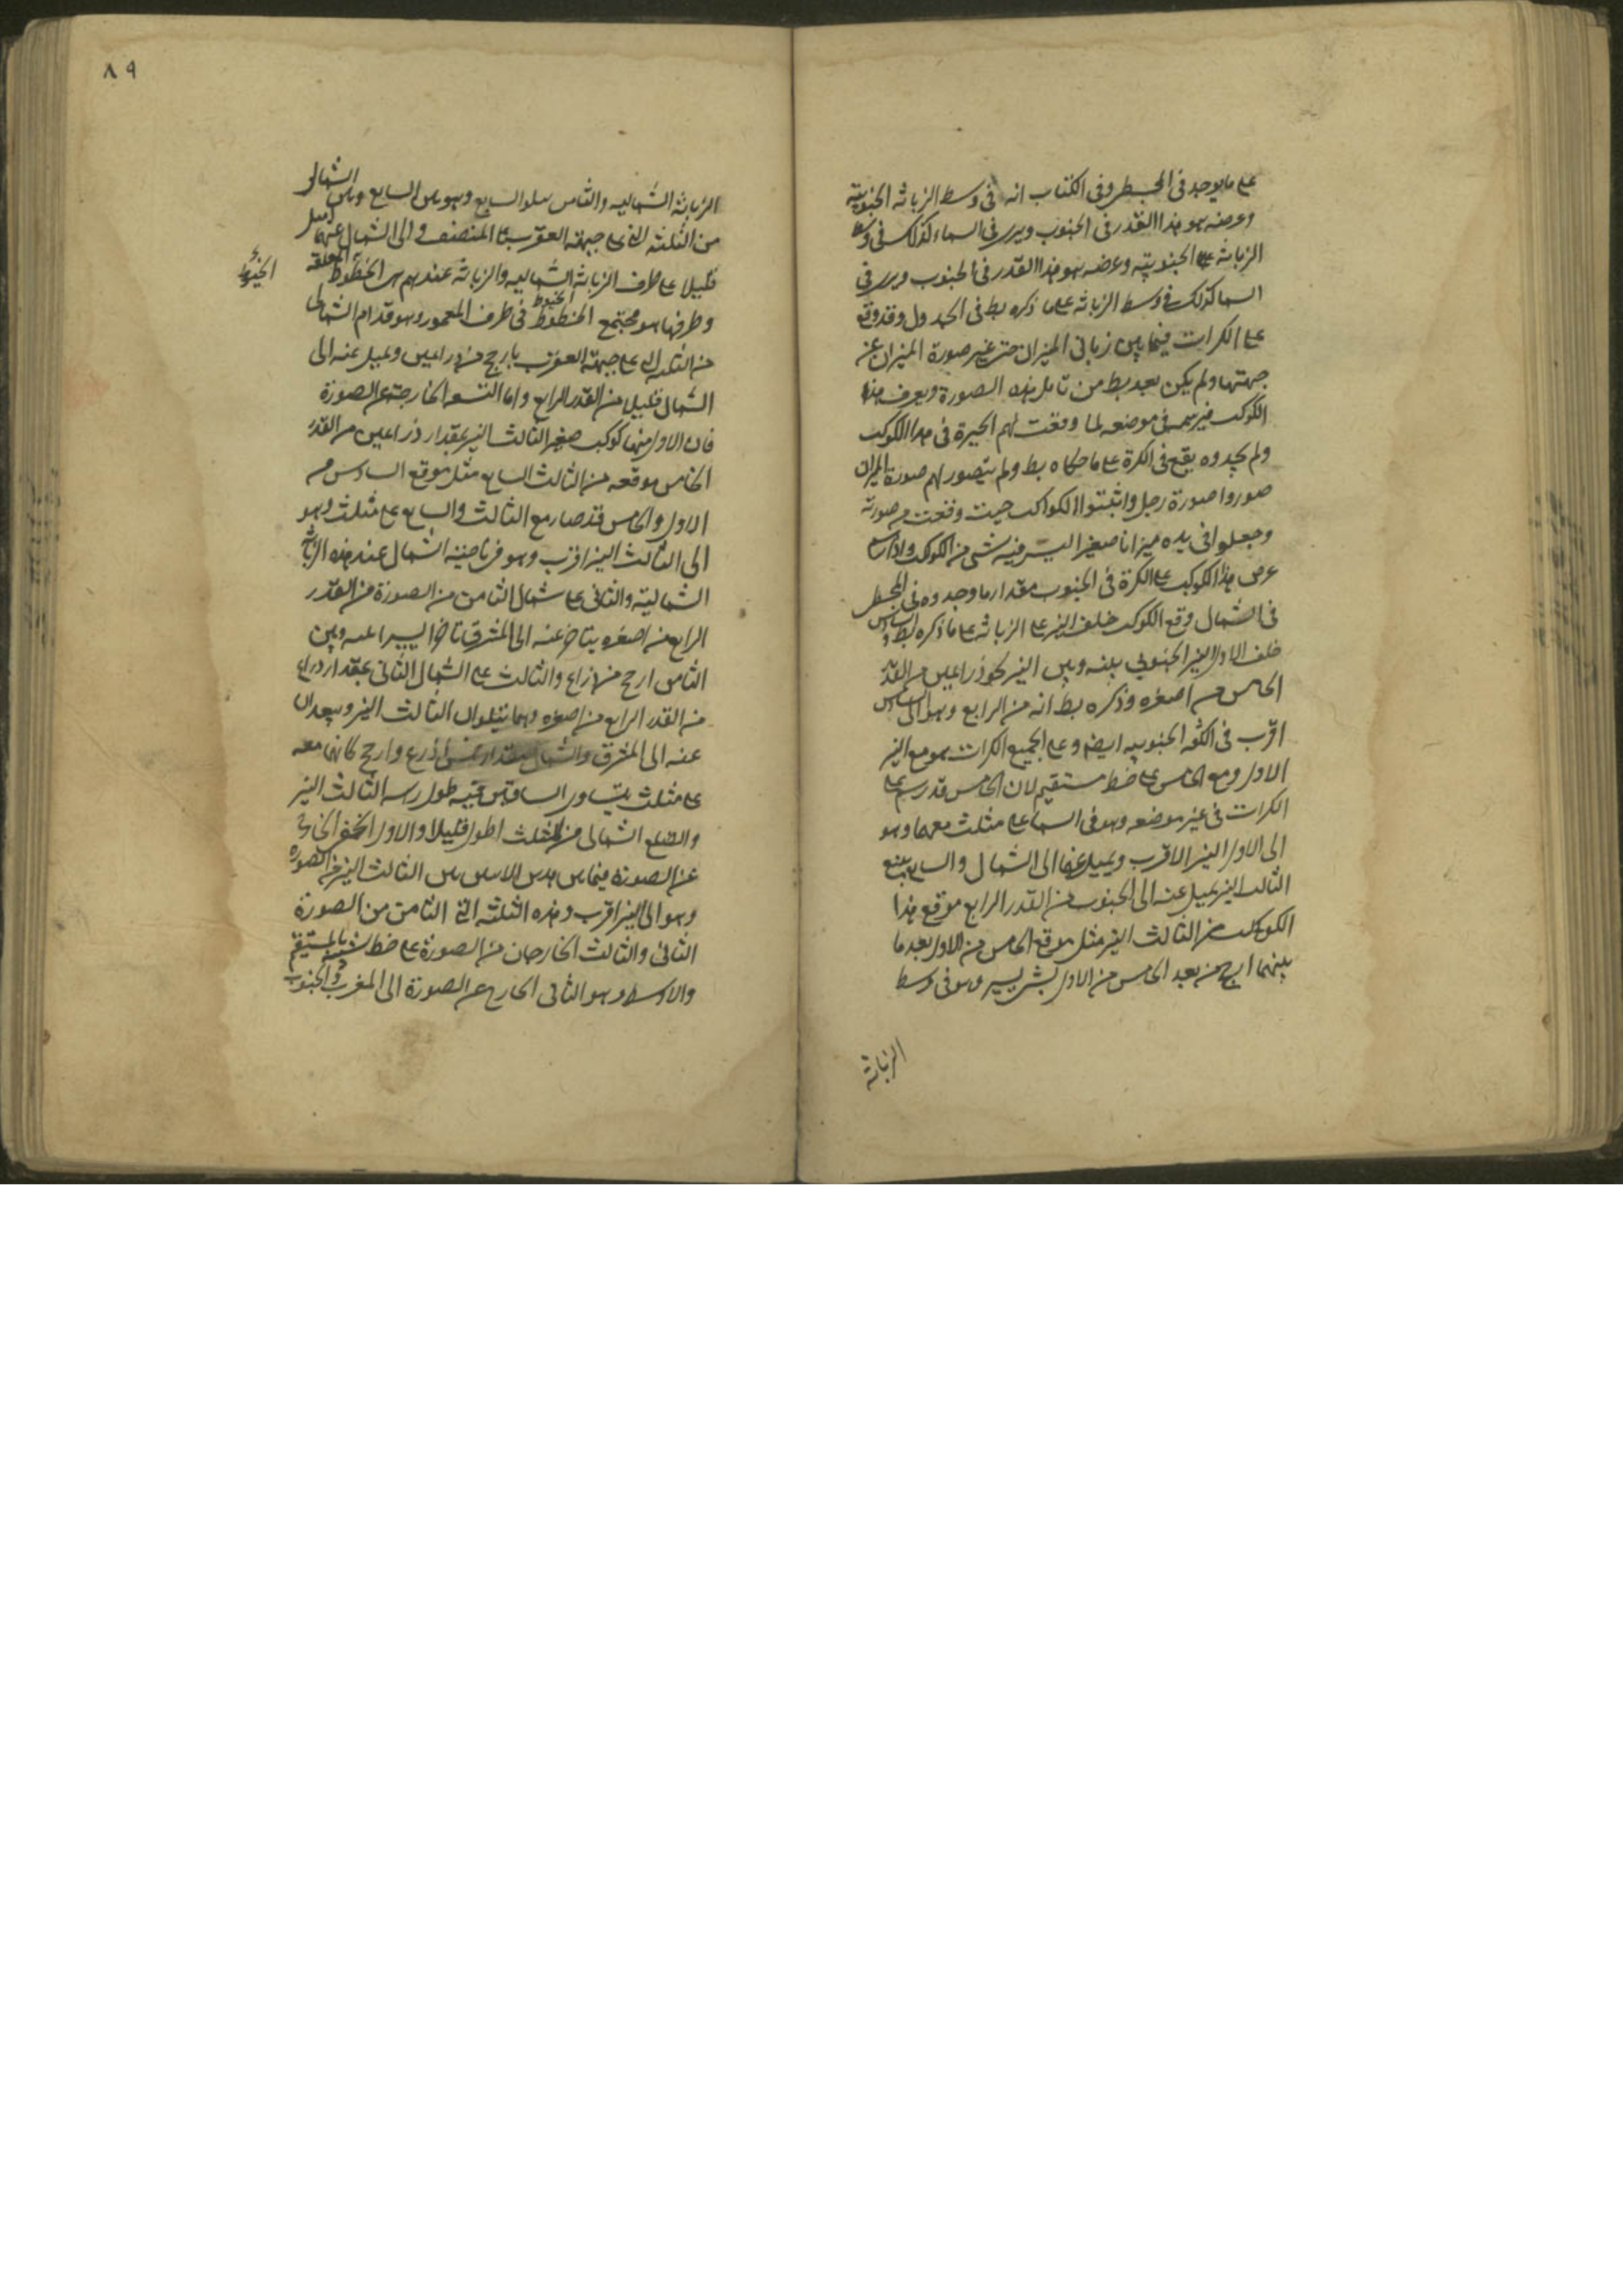 على ما يوجد في المجسطي وفي الكتاب انه في وسط الزبانه الجنوبية
وعرضه هو هذا القدر في الجنوب ويرى في السماء كذلك في وسط
الزبانه الجنوبيه وعرضه هو هذا القدر في الجنوب ويرى في
السما كذلك في وسط الزبانه على ما ذكره بط في الجدول وقد وقع
على الكرات فيما بين زباني الميزان حتى غير صورة الميزان عن
جهتها ولم يكن بعد بط من تامل هذه الصورة ويعرف هذا
الكوكب فيرسمه في موضعه لما وقعت لهم الحيرة في هذا الكوكب
ولم يجدوه يقع في الكرة على ما حكاه بط ولم يتصور لهم صورة الميزان
صوروا صورة رجل واثبتوا الكواكب حيث وقعت من صورته
وجعلوا في يده ميزانا صغيرا ليس فيه شي من الكوكب واذا
عرض هذا الكوكب على الكرة في الجنوب مقدار ما وجدوه في المجسطي
في الشمال وقع الكوكب خلف النير على الزبانه على ما ذكره بط والسادس
خلف الاول النير الجنوبي بينه وبين النير نحو ذراعين من القدر
الخامس من اصغره وذكره بط انه من الرابع وهو الى السادس
اقرب في الكفه الجنوبيه ايضا وعلى جميع الكرات هو مع النير
الاول ومع الخامس على خط مستقيم لان الخامس قد رسم على
الكرات في غير موضعه وهو في السما على مثلث معهما وهو
الى الاول النير الاقرب ويميل عنها الى الشمال والسابع يتبع
الثالث النير يميل عنه الى الجنوب من القدر الرابع موقع هذا
الكوكب من الثالث النير مثل موقع الخامس من الاول بعد ما
بينهما ارجح من بعد الخامس من الاول بشي يسير وهو في وسط
الزبانه
٨٩
الزبانه الشماليه والثامن يتلو السابع وهو بين السابع وبين الشمالي
من الثلثه التي على جبهة العقرب المنتصف والى الشمال عنهما يميل
قليلا على طرف الزبانه الشماليه والزبانه عندهم هي الخطوط المعلقه
الخيوط
وطرفها هو مجتمع الخطوط في طرف المعمود وهو قدام الشمالي
الخيوط
من الثلثه التي على جبهة العقرب بارجح من ذراعين ويميل عنه الى
الشمال قليل من القدر الرابع واما التسعه الخارجة عن الصورة
فان الاول منها كوكب صغير الثالث النير بمقدار ذراعين من القدر
الخامس موقعه من الثالث السابع مثل موقع السادس من
الاول والخامس قد صار مع الثالث والسابع على مثلث وهو
الى الثالث النير اقرب وهو في ناحية الشمال عند هذه الزبانه
الشمالية والثاني على شمال الثامن من الصورة من القدر
الرابع من اصغره يتاخر عنه الى المشرق تاخرا يسيرا وبين
الثامن ارجح من ذراع والثالث على الشمال الثاني بمقدار ذراع
من القدر الرابع من اصغره وهما يتلوان الثالث النير ويبعدان
عنه الى المشرق والشمال بمقدار خمس اذرع وارجح كانهما معه
على مثلث متساوي الساقين فيه طول راسه الثالث النير
والضلع الشمالي من المثلث اطول قليلا والاول الخارج
عن الصورة فيما بين هذين الاثنين بين الثالث النير من الصوره
وهو الى النير اقرب وهذه الثلثه التي الثامن من الصورة
الثاني والثالث الخارجان من الصورة على خط شبيه بالمستقيم
والاوسط وهو الثاني الخارج عن الصورة الى المغرب والجنوب